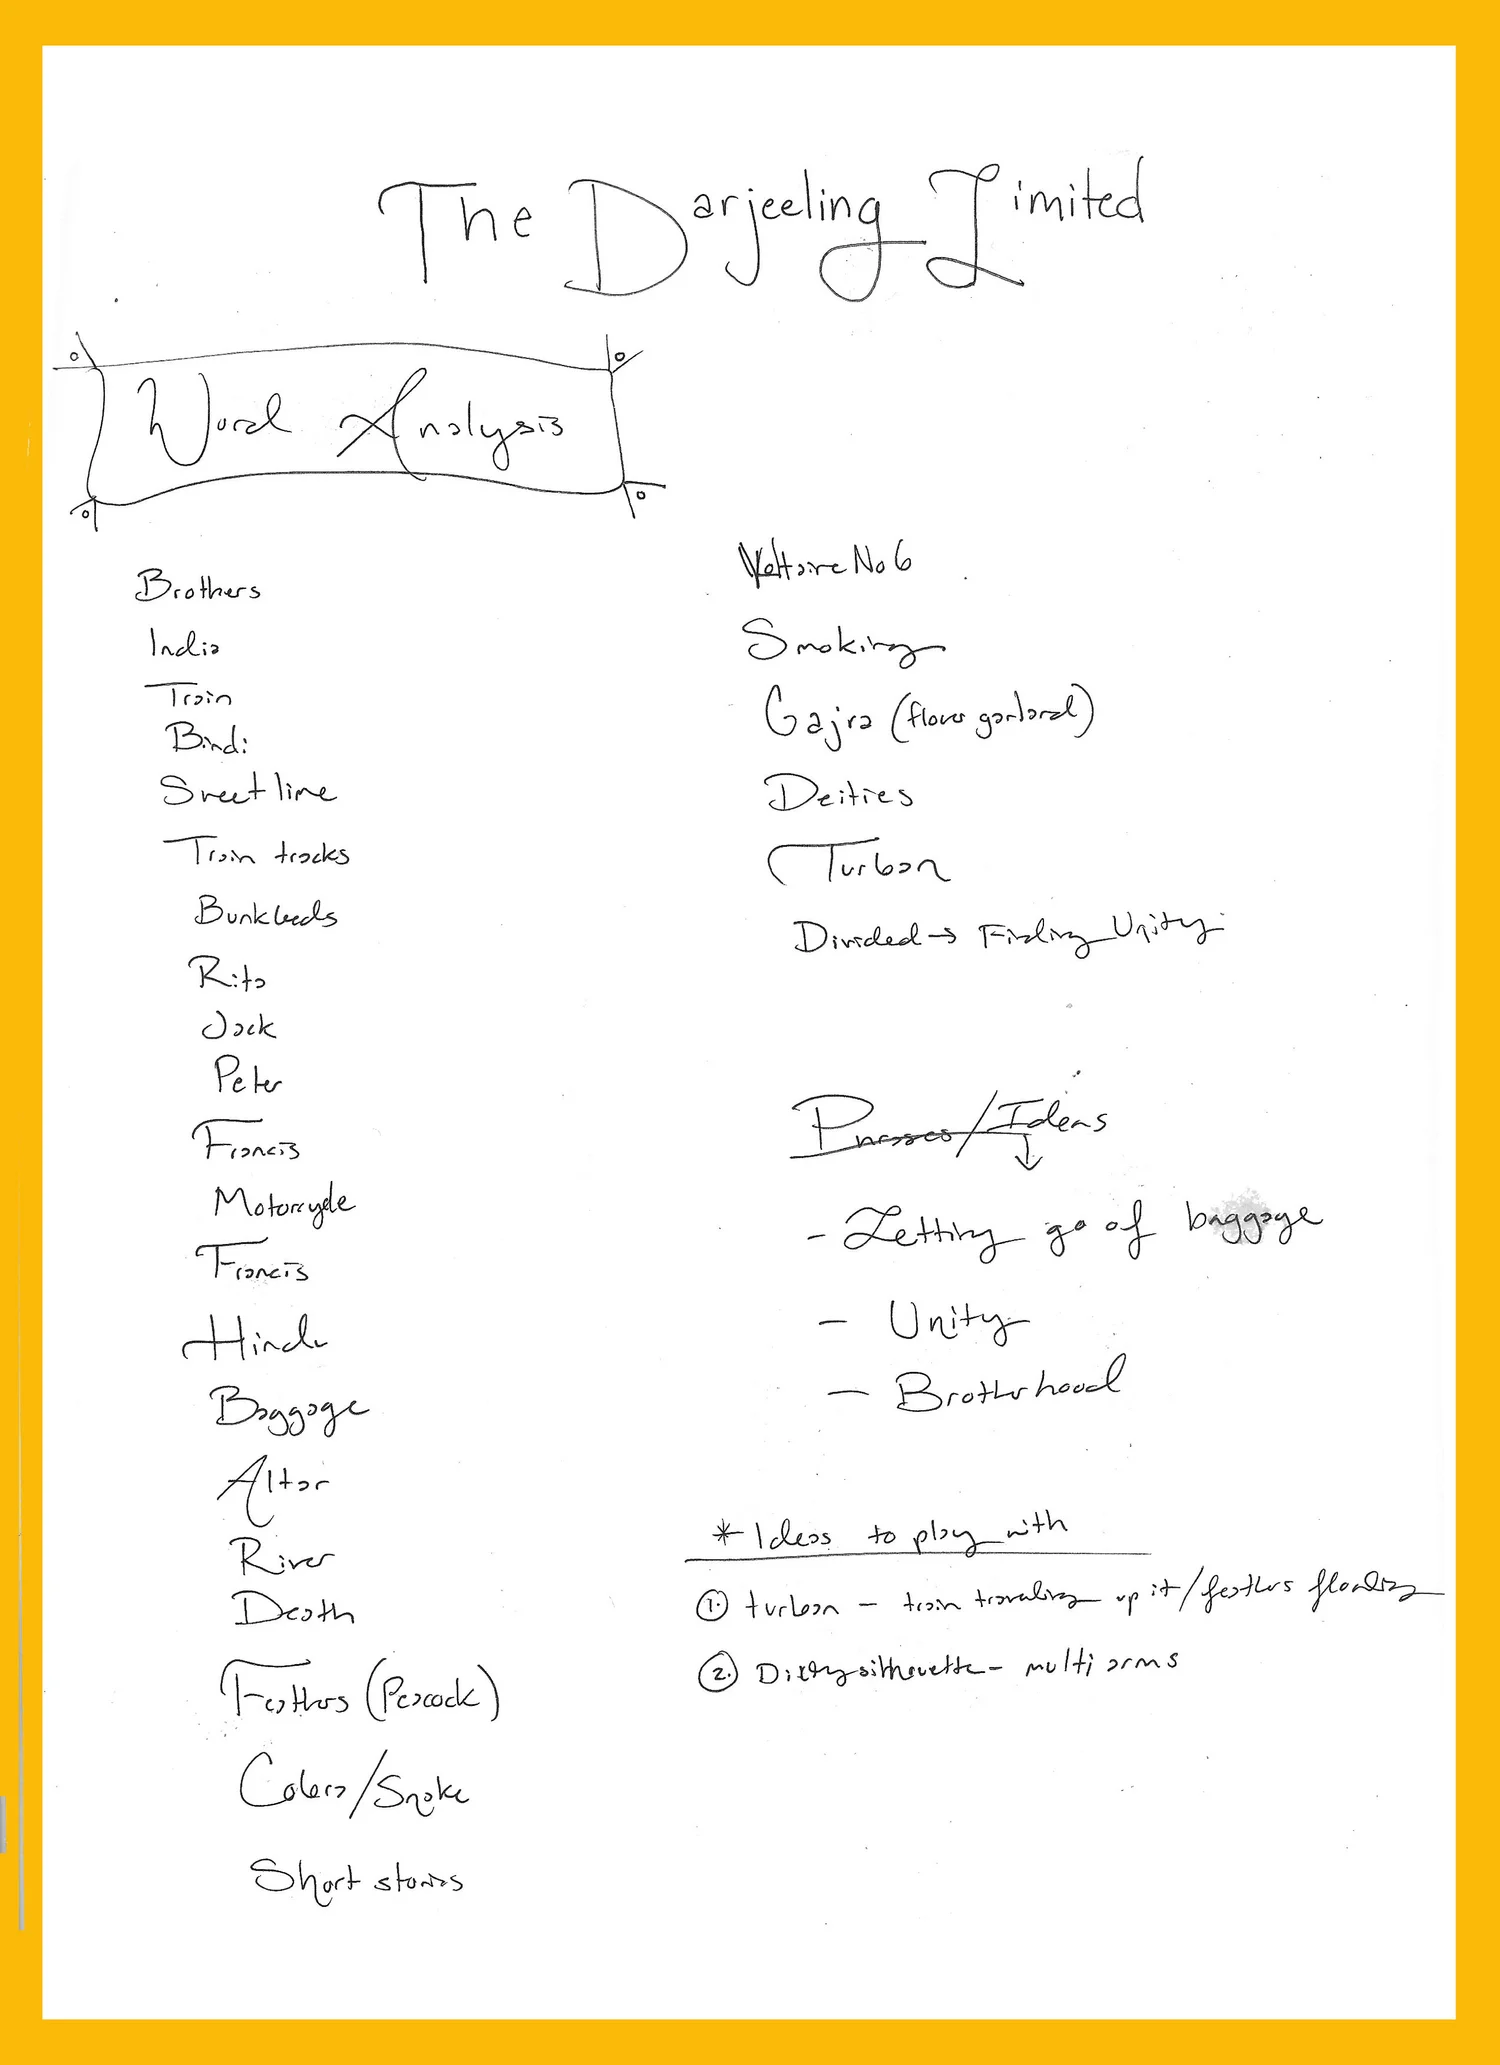 The Darjeeling Limited
Word Analysis
Brothers
India
Train
Bindi
Sweet lime
Train tracks
Bunkbeds
Rita
Jack
Peter
Francis
Motorcycle
Francis
Hindu
Baggage
Altar
River
Death
Feathers (Peacock)
Cobra/Snake
Short stories
Voltaire No 6
Smoking
Gajra (flower garland)
Deities
Turban
Divided → Finding Unity
Phrases/Ideas
- Letting go of baggage
- Unity
- Brotherhood
* Ideas to play with
1. turban - train traveling up it/feathers floating
2. Diety silhouette - multi arms